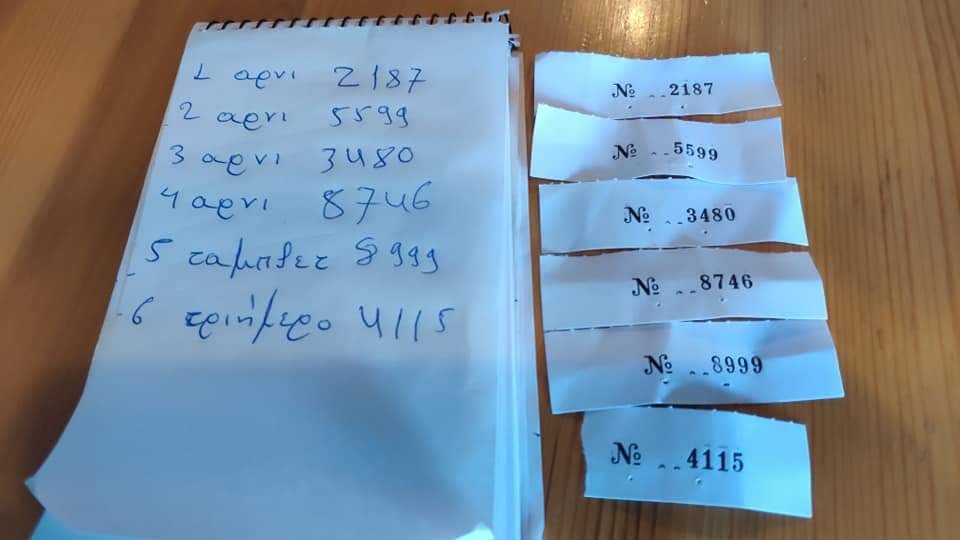 1 αρνι 2187
2 αρνι 5599
3 αρνι 3480
4 αρνι 8746
5 ταμπλετ 8999
6 τριήμερο 4115
№ 2187
№ 5599
№ 3480
№ 8746
№ 8999
№ 4115